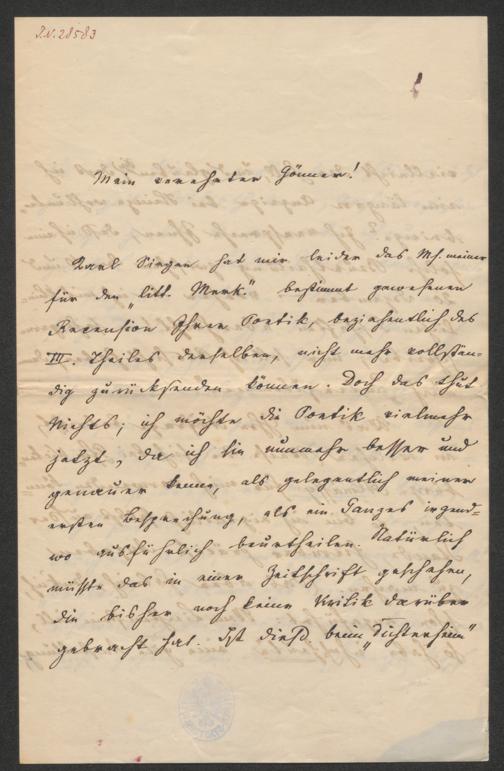 J.N. 28583
Mein verehrter Gönner!
Karl Siegen hat mir leider das Ms. meiner
für den „litt. Merk." bestimmt gewesenen
Recension Ihrer Poetik, beziehentlich des
III. Theiles derselben, nicht mehr vollstän-
dig zurücksenden können. Doch das thut
Nichts; ich möchte die Poetik vielmehr
jetzt, da ich sie nunmehr besser und
genauer kenne, als gelegentlich meiner
ersten Besprechung, als ein Ganzes irgend-
wo ausführlich beurtheilen. Natürlich
müßte das in einer Zeitschrift geschehen,
die bisher noch keine Kritik darüber
gebracht hat. Ist dieß beim „Dichterheim"